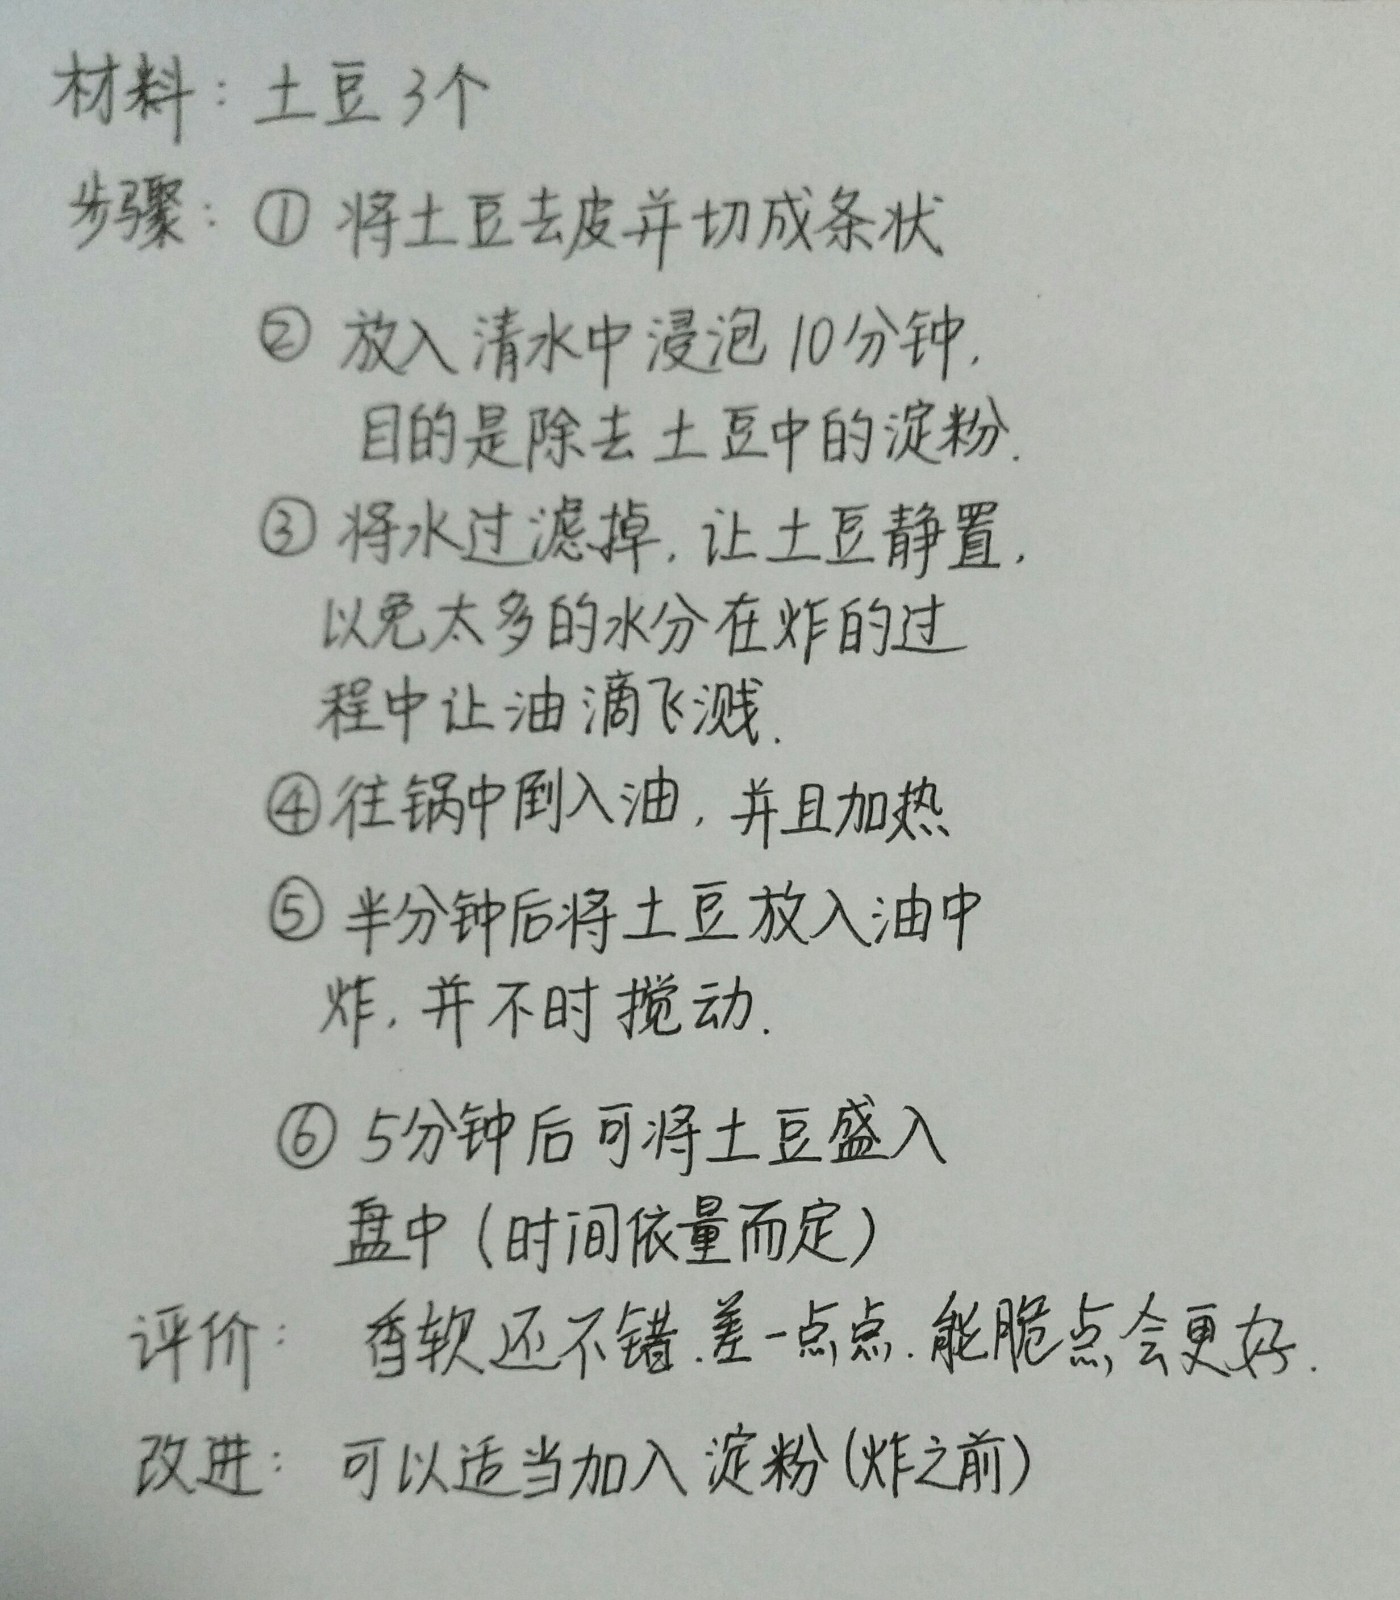 材料：土豆3个
步骤：① 将土豆去皮并切成条状
② 放入清水中浸泡10分钟，
目的是除去土豆中的淀粉.
③ 将水过滤掉，让土豆静置，
以免太多的水分在炸的过
程中让油滴飞溅.
④ 往锅中倒入油，并且加热
⑤ 半分钟后将土豆放入油中
炸，并不时搅动.
⑥ 5分钟后可将土豆盛入
盘中(时间依量而定)
评价：香软还不错.差一点点.能脆点会更好.
改进：可以适当加入淀粉(炸之前)